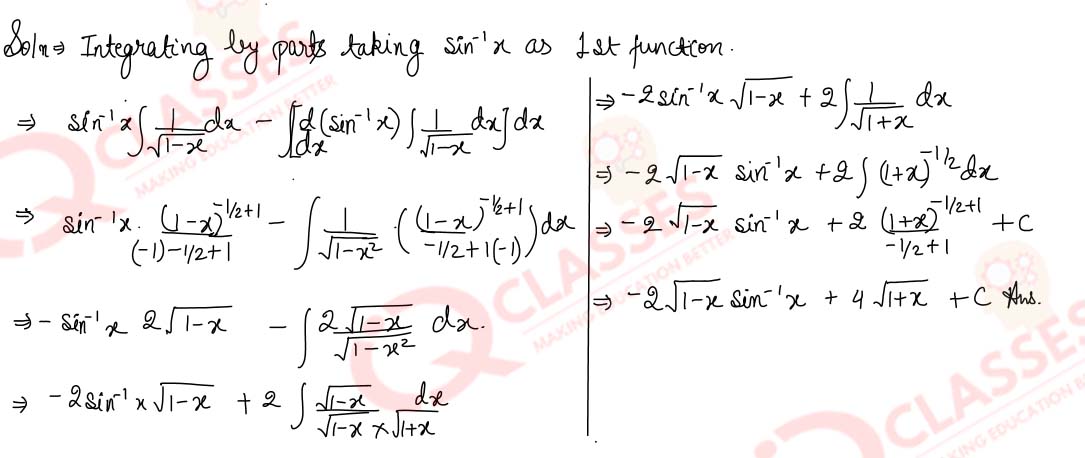 Soln⇒ Integrating by parts taking sin⁻¹x as 1st function.
⇒ sin⁻¹x ∫ 1/√(1-x) dx - ∫[d/dx (sin⁻¹x) ∫ 1/√(1-x) dx] dx
⇒ sin⁻¹x . (1-x)^(-1/2+1) / (-1)-1/2+1 - ∫ 1/√(1-x²) . ((1-x)^(-1/2+1) / -1/2+1(-1)) dx
⇒ - sin⁻¹x 2√(1-x) - ∫ 2√(1-x)/√(1-x²) dx.
⇒ -2sin⁻¹x √(1-x) + 2 ∫ √(1-x)/√(1-x) × dx/√(1+x)
⇒ -2sin⁻¹x √(1-x) + 2∫ 1/√(1+x) dx
⇒ -2√(1-x) sin⁻¹x + 2∫ (1+x)^(-1/2) dx
⇒ -2√(1-x) sin⁻¹x + 2 (1+x)^(-1/2+1) / -1/2+1 + C
⇒ -2√(1-x) sin⁻¹x + 4√(1+x) + C Ans.
CLASSES
MAKING EDUCATION BETTER
CLASSES
MAKING EDUCATION BETTER
CLASSES
MAKING EDUCATION BE